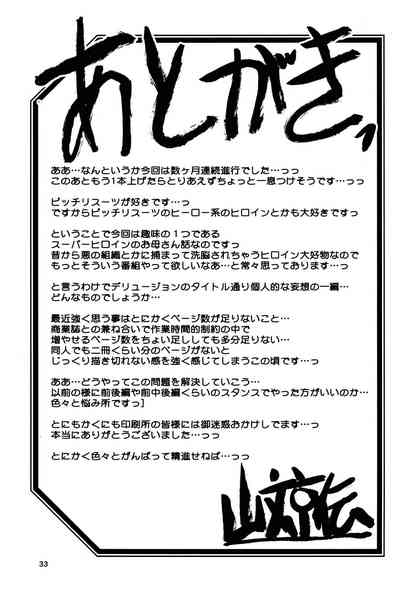 あとがきっ
ああ…なんというか今回は数ヶ月連続進行でした…っっ
このあともう1本上げたらとりあえずちょっと一息つけそうです…っっ
ピッチリスーツが好きです…っ
ですからピッチリスーツのヒーロー系のヒロインとかも大好きですっ
ということで今回は趣味の1つである
スーパーヒロインのお母さん話なのですっ
昔から悪の組織とかに捕まって洗脳されちゃうヒロイン大好物なので
もっとそういう番組やって欲しいなあ…と常々思っております…っ
と言うわけでデリュージョンのタイトル通り個人的な妄想の一編…
どんなものでしょうか…
最近強く思う事はとにかくページ数が足りないこと…
商業誌との兼ね合いで作業時間的制約の中で
増やせるページ数をちょい足ししても多分足りない…
同人でも二冊くらい分のページがないと
じっくり描き切れない感を強く感じてしまうこの頃です…っ
ああ…どうやってこの問題を解決していこう…
以前の様に前後編や前中後編くらいのスタンスでやった方がいいのか…
色々と悩み所ですっ]
とにもかくにも印刷所の皆様には御迷惑おかけしてます…っ
本当にありがとうございました…っっ
とにかく色々とがんばって精進せねば…っっ
山文京伝
33